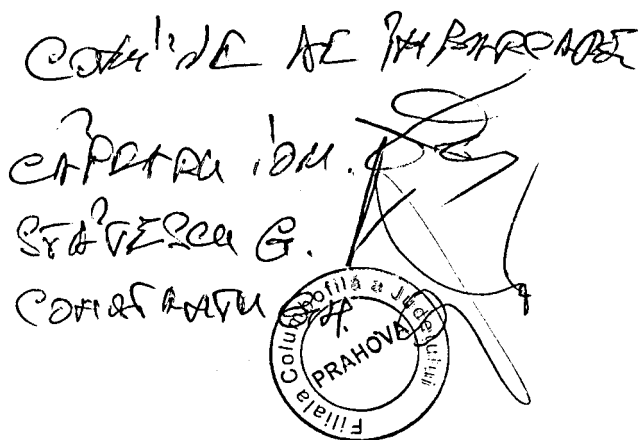 COMISIE DE ÎMBARCARE
CĂPRARU ION.
STĂTESCU G.
CONSTANTIN GH.
Filiala Columbofilă a Județului
PRAHOVA